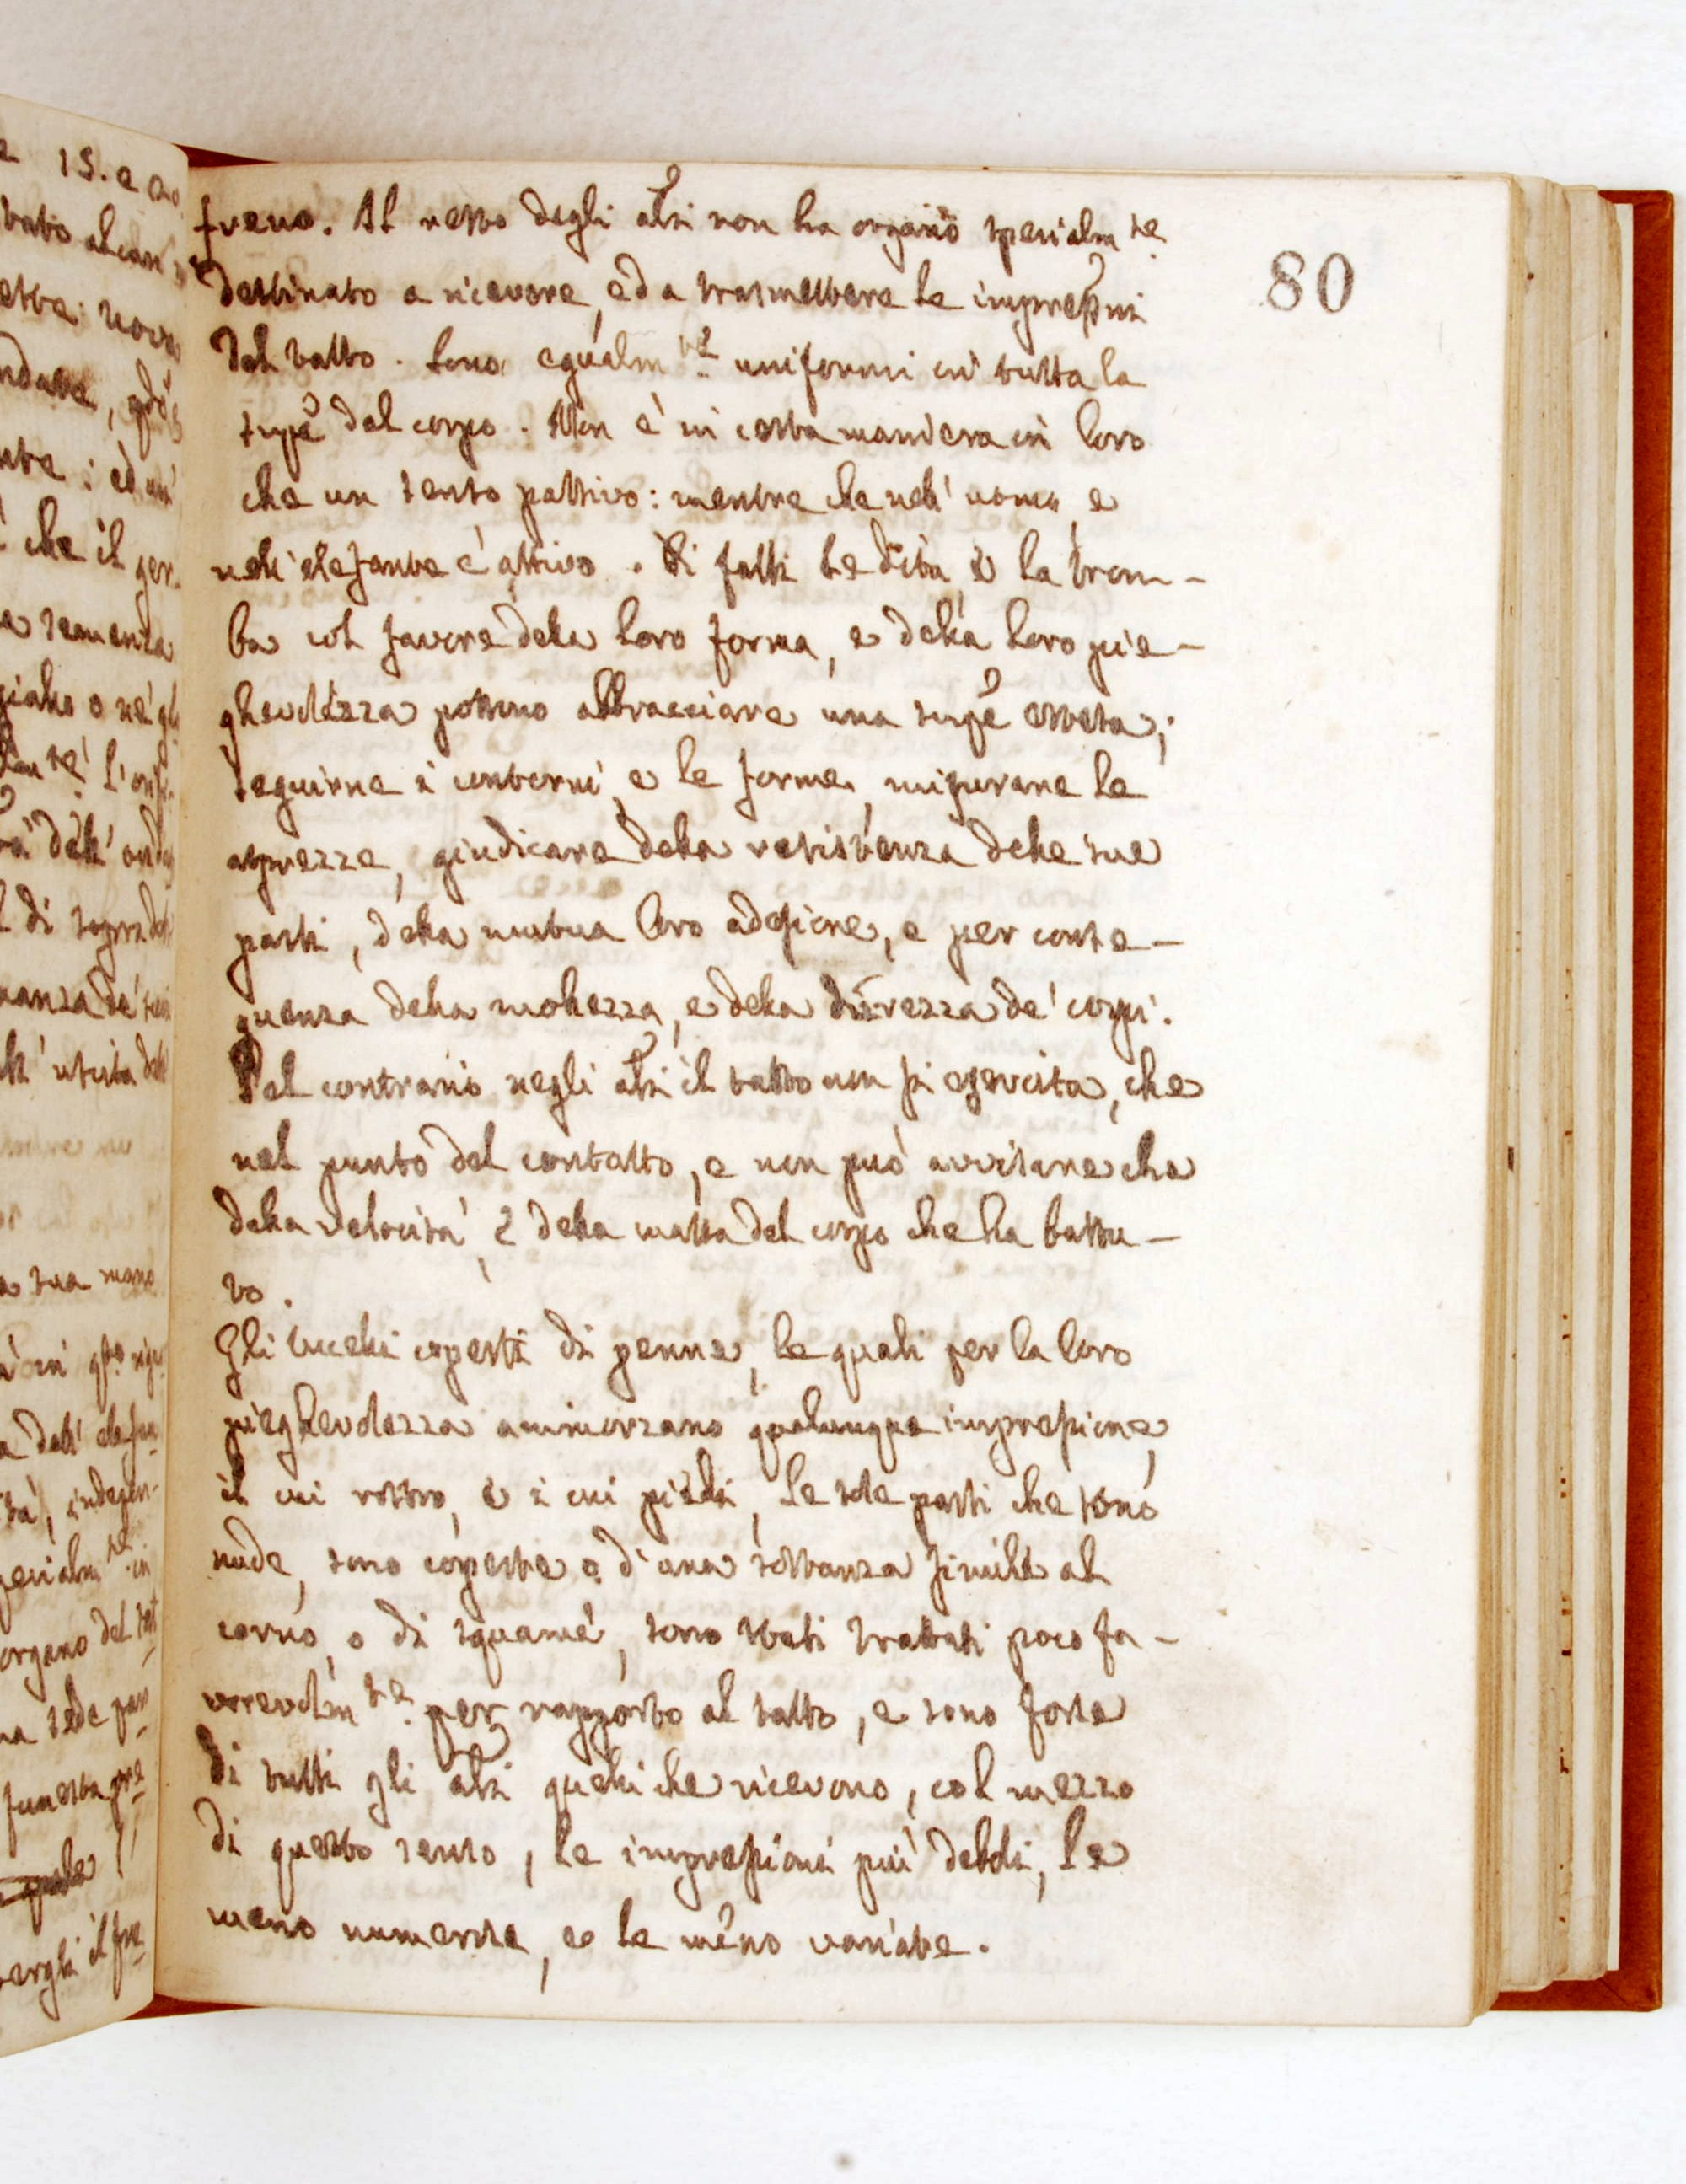 freno. Il resto degli alti non ha organo specialm.te
destinato a ricevere, ed a trasmettere le impressni
del tatto. Sono egualm.te uniformi in tutta la
supe del corpo. Non è in certa maniera in loro
che un senso passivo: mentre che nell' uomo, e
nell' elefante è attivo. Di fatti le dita, e la trom-
ba col favore della loro forma, e della loro pie-
ghevolezza possono abbracciare una supe estesa,
seguirne i contorni, e le forme, misurarne le
asprezze, giudicare della resistenza delle sue
parti, della mutua loro adesione, e per conse-
guenza della mollezza, e della durezza de' corpi.
Pel contrario negli alti il tatto non si esercita, che
nel punto del contatto, e non può avvisare che
della velocità, e della massa del corpo che ha battu-
to.
Gli uccelli coperti di penne, le quali per la loro
pieghevolezza ammorzano qualunque impressione,
il cui rostro, e i cui piedi, le sole parti che sono
nude, sono coperte o d'una sostanza simile al
corno, o di squame, sono stati trattati poco fa-
vorevolm.te per rapporto al tatto, e sono forse
di tutti gli alti quelli che ricevono, col mezzo
di questo senso, le impressioni più deboli, le
meno numerose, e le meno variate.
80